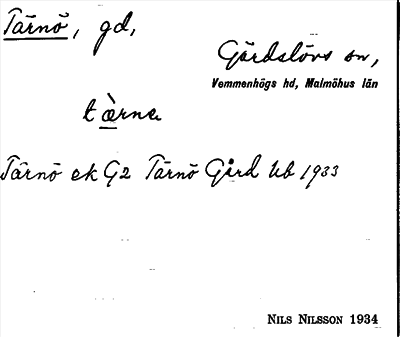 Tärnö, gd,
Gärdslövs sn,
Vemmenhögs hd, Malmöhus län
tærna
Tärnö ek G2 Tärnö Gård Ub 1933
NILS NILSSON 1934